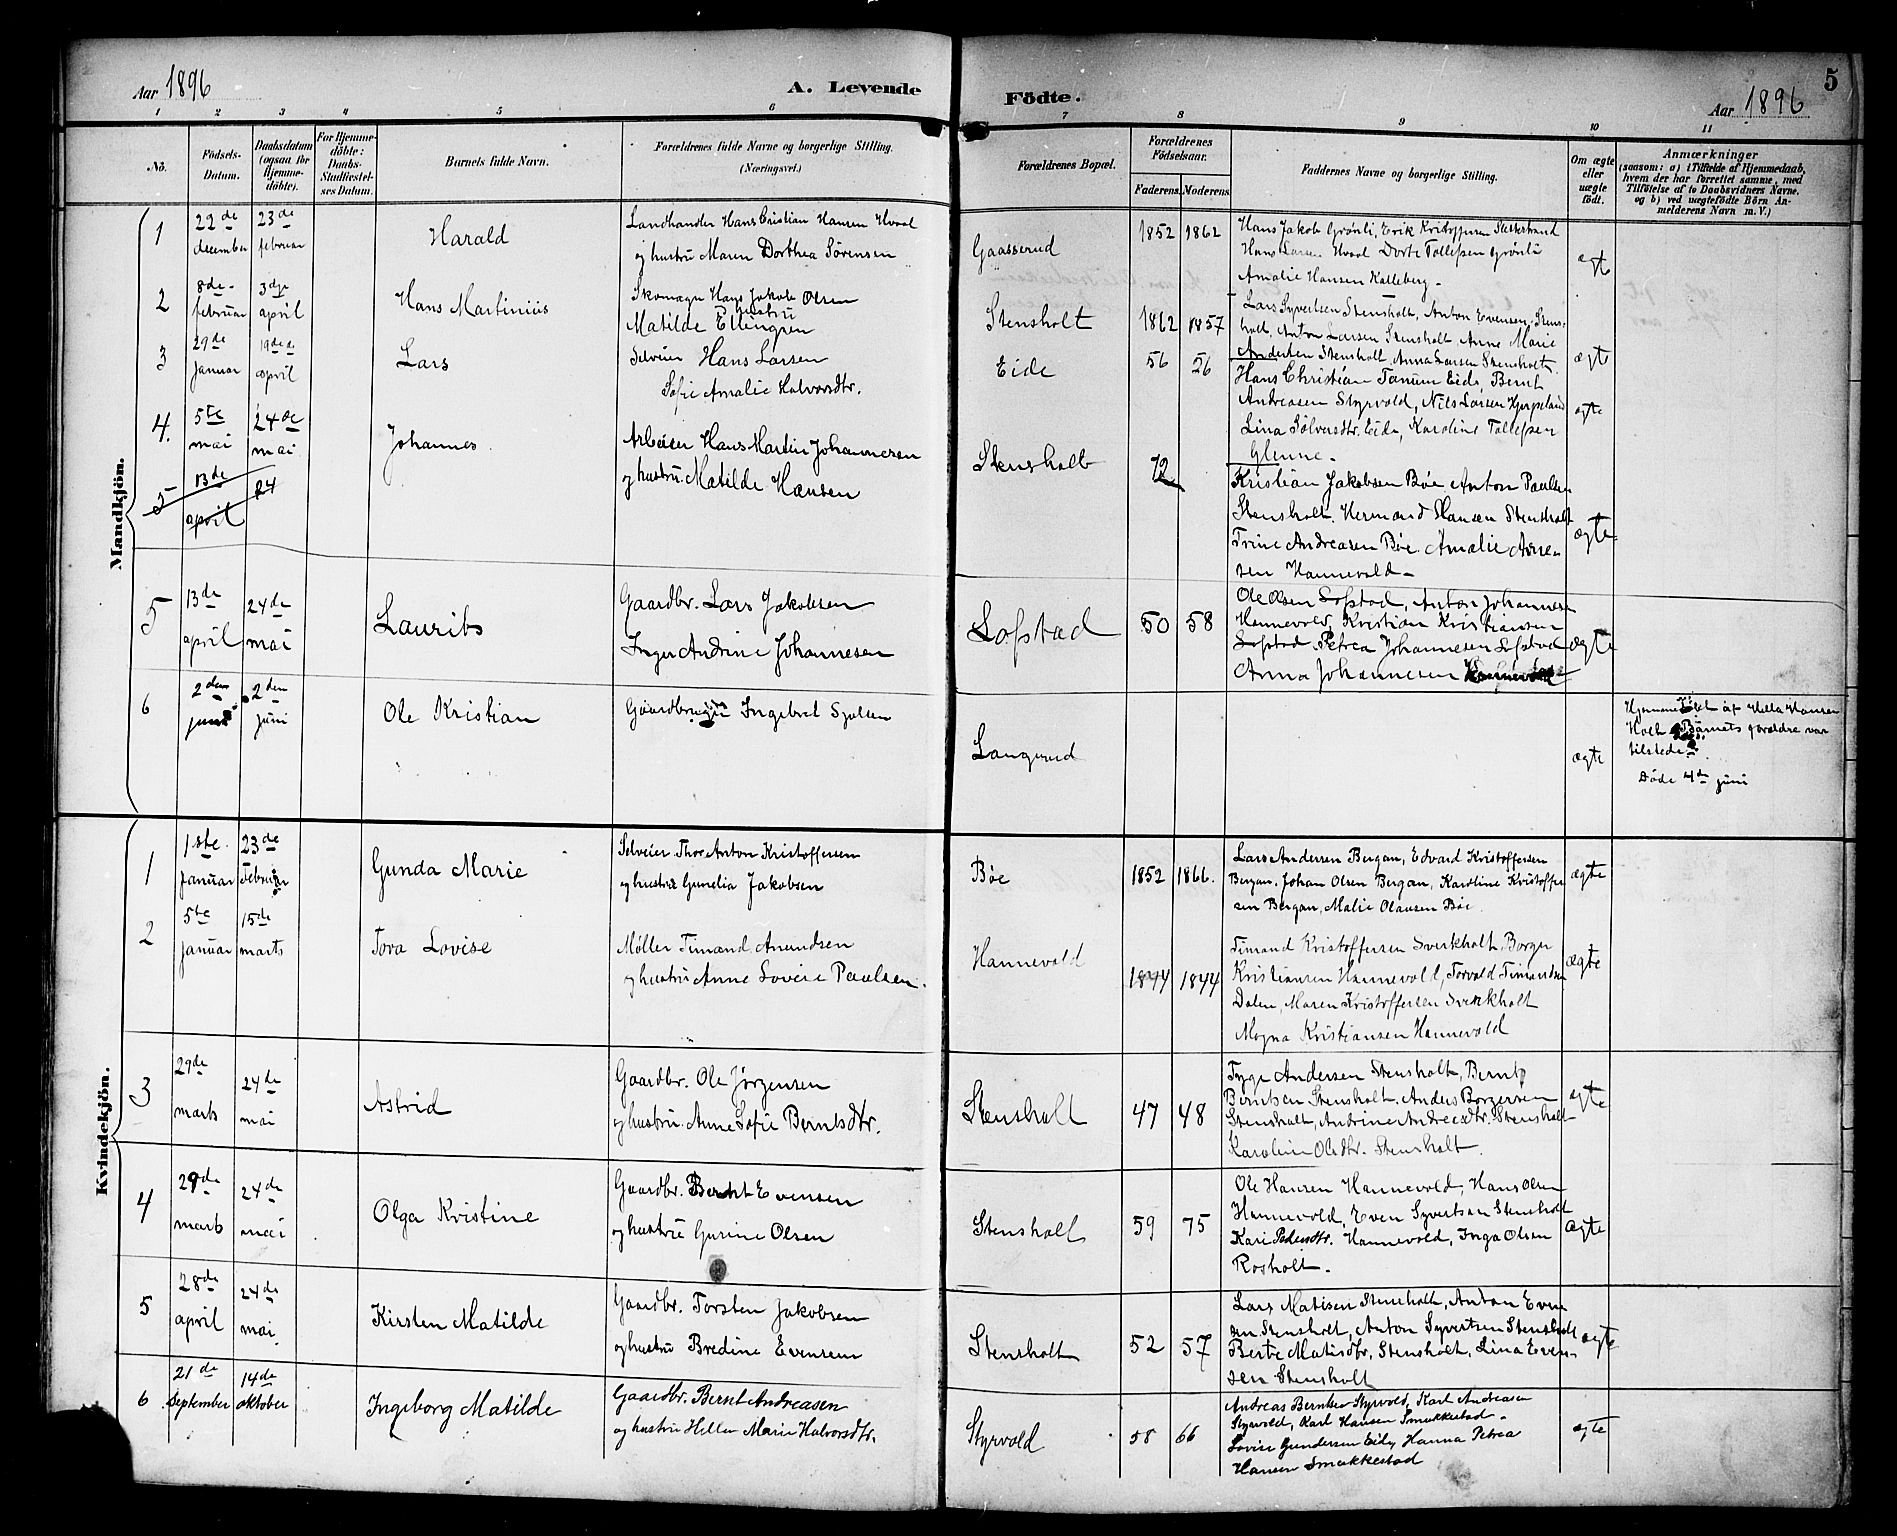 Aar 1896
A. Levende
Födte.
Aar 1896
5
1 2 3 4 5 6 7 8 9 10 11
No.
Födsels-
Datum.
Daabsdatum
(ogsaa for
Hjemme-
döbte).
For Hjemme-
döbte:
Daabs-
Stadfæstel-
ses Datum.
Barnets fulde Navn.
Forældrenes fulde Navne og borgerlige Stilling.
(Næringsvei.)
Forældrenes Bopæl.
Forældrenes
Födselsaar.
Faderens. Moderens
Faddernes Navne og borgerlige Stilling.
Om ægte
eller
uægte
födt.
Anmærkninger
(saasom: a) i Tilfælde af Hjemmedaab,
hvem der har forrettet samme, med
Tilföielse af to Daabsvidners Navne.
og b) ved uægtefödte Börn An-
melderens Navn m. V.)
Mandkjön.
1
22de december
23de februar
Harald
Landhandler Hans Cristian Hansen Hvaal
og hustru Maren Dorthea Sörensen
Gaasserud
1852 1862
Hans Jakob Grönli, Erik Kristoffersen
Hans Larsen Hvaal Dorte Tollefsen Grönli
Amalie Hansen Kalleberg
ægte
2
8de februar
3die april
Hans Martinius
Skomager Hans Jakob Olsen
hustru
Matilde Ellingsen
Stensholt
1862 1857
Lars Syvertsen Stensholt, Anton Evensen Stens-
holt, Anton Larsen Stensholt, Anne Marie
Andersen Stensholt, Anna Larsen Stensholt
ægte
3
29de Januar
19de april
Lars
Selveier Hans Larsen
Sofie Amalie Halvorsdtr.
Eide
56 56
Hans Christian Tanum Eide, Bernt
Andreasen Styrvold, Nils Larsen Hjerpeland
Lina Sölversdtr. Eide, Karoline Tollefsen
Glenne
ægte
4.
5te mai
24de mai
Johannes
Arbeider Hans Martin Johannesen
og hustru Matilde Hansen
Stensholt
72
Kristian Jakobsen Böe Anton Paulsen
Stensholt. Herman Hansen Stensholt
Trine Andreasen Böe. Amalie Arne-
sen Hannevold
ægte
5
13de april
24
5
13de april
24de mai
Laurits
Gaardbr. Lars Jakobsen
Inger Andrine Johannesen
Lofstad
50 58
Ole Olsen Lofstad, Anton Johannesen
Hannevold, Kristian Kristiansen
Lofstad Petrea Johannesen Lofstad
Anna Johannesen Hannevold
ægte
6
2den juni
2den juni
Ole Kristian
Gaardbruger Ingebret
Langerud
ægte
Hjemmedöbt af Hella Hansen
Holt Barnets forældre var
tilstede
Döde 4de juni
Kvindekjön.
1
1ste Januar
23de Februar
Gunda Marie
Selveier Thor Anton Kristoffersen
og hustru Gunelia Jakobsen
Böe
1852 1866.
Lars Andersen Bergan, Edvard Kristoffersen
Bergan, Johan Olsen Bergan, Karoline Kristoffer
sen Bergan, Malie Olausen Böe
ægte
2
5te Januar
15de marts
Tora Lovise
Möller Timand Amundsen
og hustru Anne Lovise Paulsen.
Hannevold
1844 1844
Timand Kristoffersen Sverkholt, Borger
Kristiansen Hannevold, Torvald Timandsen
Dalen, Maren Kristoffersen Sverkholt
Magna Kristiansen Hannevold
ægte
3
29de marts
24de mai
Astrid
Gaardbr. Ole Jörgensen
og hustru Anne Sofie Berntsdtr.
Stensholt
47 48
Tyge Andersen Stensholt, Bernt
Berntsen Stensholt. Anders Borgersen
Stensholt, Andrine Andreasdtr. Stensholt
Karoline Olsdtr. Stensholt.
ægte
4
29de marts
24de mai
Olga Kristine
Gaardbr. Bernt Evensen
og hustru Gurine Olsen
Stensholt
59 75
Ole Hansen Hannevold, Hans Olsen
Hannevold, Even Syvertsen Stensholt
Kari Pedersdtr. Hannevold, Inga Olsen
Rosholt
ægte
5
28de april
24de mai
Kirsten Matilde
Gaardbr. Torsten Jakobsen
og hustru Bredine Evensen
Stensholt
52 57
Lars Matisen Stensholt, Anton Even
sen Stensholt, Anton Syvertsen Stensholt
Berte Matisdtr, Stensholt, Lina Even-
sen Stensholt
ægte
6
21de September
14de oktober
Ingeborg Matilde
Gaardbr. Bernt Andreasen
og hustru Hella Marie Halvorsdtr.
Styrvold
58 66
Andreas Berntsen Styrvold, Karl Andreasen
Styrvold, Karl Hansen Smukkestad
Lovise Gundersen Eide, Hanna Petrea
Hansen Smukkestad
ægte